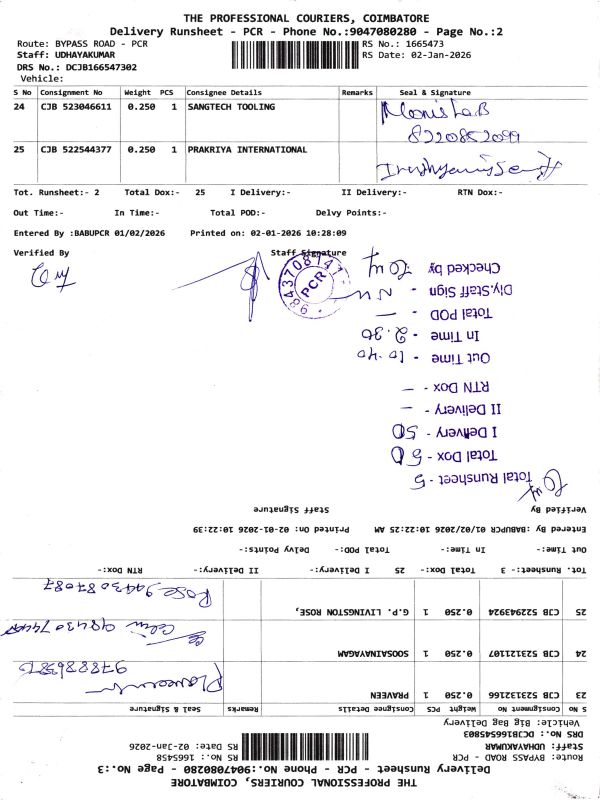 THE PROFESSIONAL COURIERS, COIMBATORE
Delivery Runsheet - PCR - Phone No.:9047080280 - Page No.:2
Route: BYPASS ROAD - PCR
RS No.: 1665473
Staff: UDHAYAKUMAR
RS Date: 02-Jan-2026
DRS No.: DCJB166547302
Vehicle:
S No Consignment No Weight PCS Consignee Details Remarks Seal & Signature
24 CJB 523046611 0.250 1 SANGTECH TOOLING
8220852099
25 CJB 522544377 0.250 1 PRAKRIYA INTERNATIONAL
Tot. Runsheet:- 2 Total Dox:- 25 I Delivery:- II Delivery:- RTN Dox:-
Out Time:- In Time:- Total POD:- Delvy Points:-
Entered By :BABUPCR 01/02/2026 Printed on: 02-01-2026 10:28:09
Verified By Staff Signature
9843708141
PCR
THE PROFESSIONAL COURIERS, COIMBATORE
Delivery Runsheet - PCR - Phone No.:9047080280 - Page No.:3
Route: BYPASS ROAD - PCR
RS No.: 1665458
Staff: UDHAYAKUMAR
RS Date: 02-Jan-2026
DRS No.: DCJB166545803
Vehicle: Big Bag Delivery
S No Consignment No Weight PCS Consignee Details Remarks Seal & Signature
23 CJB 523132166 0.250 1 PRAVEEN
24 CJB 523121107 0.250 1 SOOSAINAYAGAM
25 CJB 522943924 0.250 1 G.P. LIVINGSTON ROSE,
Rose 9443087087
Tot. Runsheet:- 3 Total Dox:- 25 I Delivery:- II Delivery:- RTN Dox:-
Out Time:- In Time:- Total POD:- Delvy Points:-
Entered By :BABUPCR 01/02/2026 10:22:25 AM Printed On: 02-01-2026 10:22:39
Verified By Staff Signature
Total Runsheet - 5
Total Dox - 50
I Delivery - 50
II Delivery - —
RTN Dox - —
Out Time - 10.40
In Time - 2.30
Total POD - —
Dly.Staff Sign -
Checked by